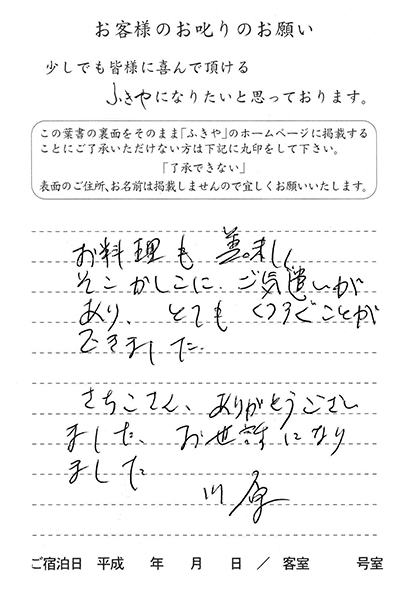 お客様のお叱りのお願い
少しでも皆様に喜んで頂ける
ふきやになりたいと思っております。
この葉書の裏面をそのまま「ふきや」のホームページに掲載する
ことにご了承いただけない方は下記に丸印をして下さい。
「了承できない」
表面のご住所、お名前は掲載しませんので宜しくお願いいたします。
お料理も美味しく
そこかしこにご気遣いが
あり、とてもくつろぐことが
できました。
さちこさん、ありがとうござい
ました、お世話になり
ました
川原
ご宿泊日 平成 年 月 日 ／ 客室 号室